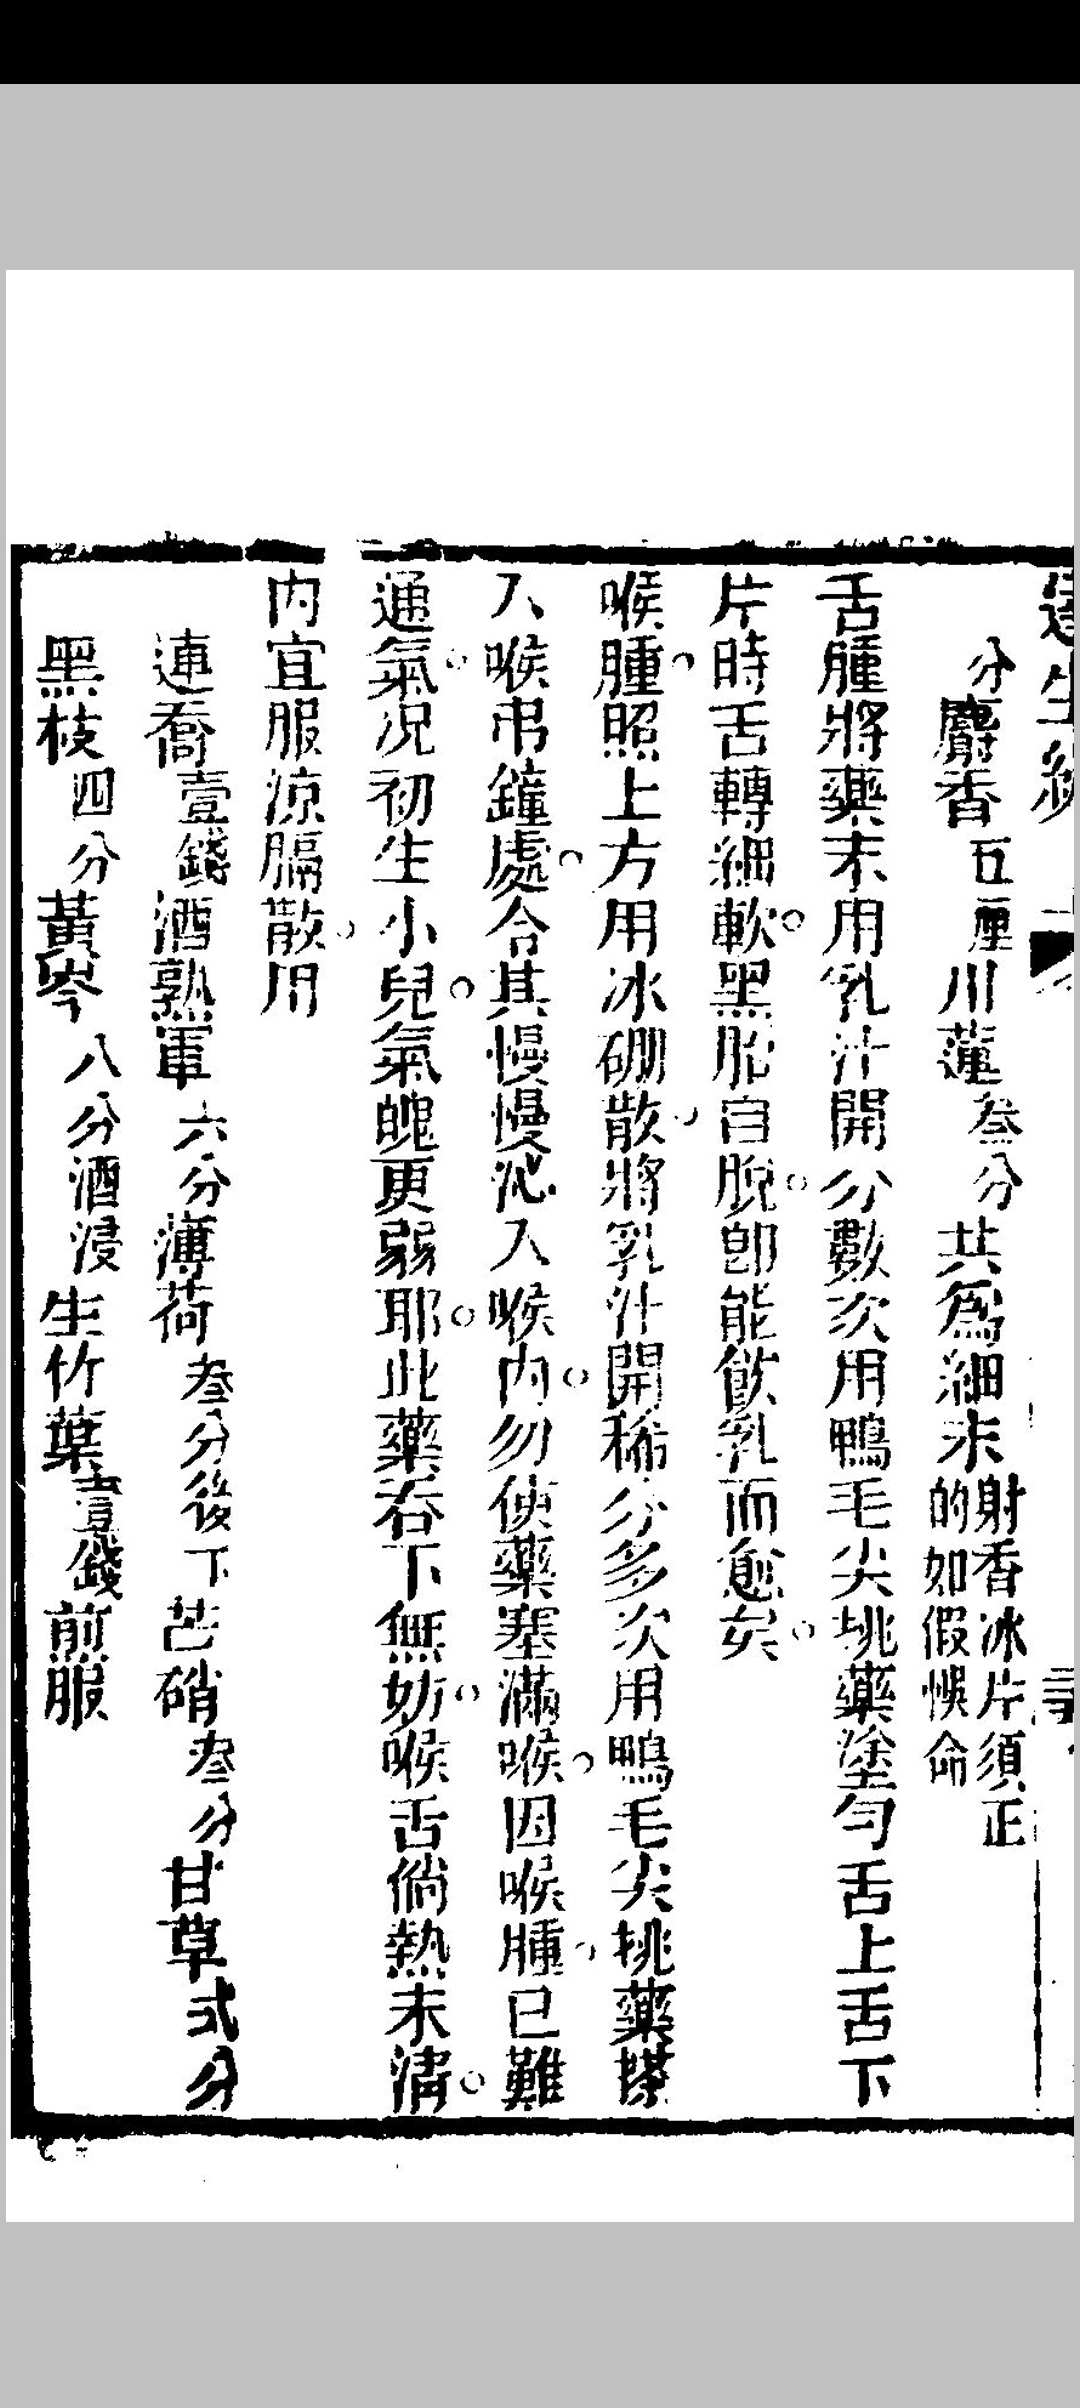 分麝香五厘川蓮叁分共為細末射香冰片須正的如假悞命
舌腫將藥末用乳汁開分數次用鴨毛尖挑藥塗勻舌上舌下
片時舌轉細軟黑胎自脫卽能飲乳而愈矣
喉腫照上方用冰硼散將乳汁開稀分多次用鴨毛尖挑藥搽
入喉弔鐘處令其慢慢沁入喉內勿使藥塞滿喉因喉腫已難
通氣况初生小兒氣魄更弱耶此藥吞下無妨喉舌倘熱未清
內宜服涼膈散用
連喬壹錢酒熟軍六分薄荷叁分後下芒硝叁分甘草弍分
黑枝四分黃岑八分酒浸生竹葉壹錢煎服